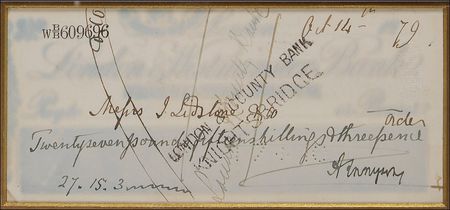 WB609696
Oct 14th 79.
LONDON & COUNTY BANK
KNIGHTSBRIDGE
Messrs J & Co
order
Twenty seven pounds fifteen shillings & threepence
27. 15. 3
A Tennyson